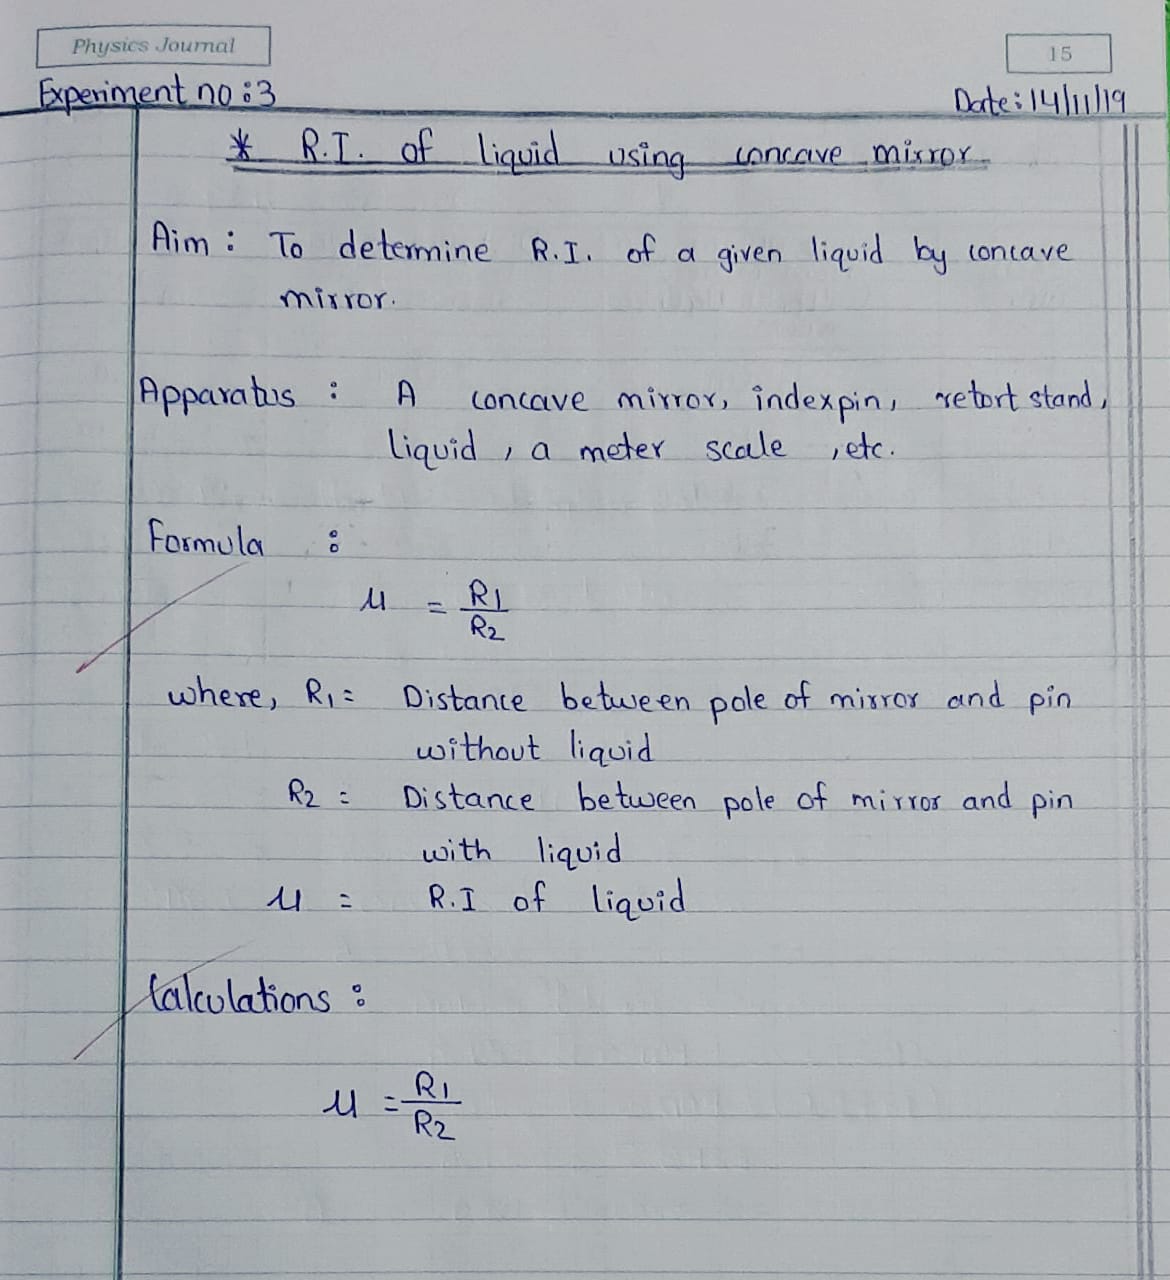 Physics Journal
15
Experiment no : 3
Date : 14/11/19
* R.I. of liquid using concave mirror
Aim : To determine R.I. of a given liquid by concave
mirror.
Apparatus : A concave mirror, index pin, retort stand,
liquid , a meter scale , etc.
Formula :
μ = R1/R2
where, R1 = Distance between pole of mirror and pin
without liquid
R2 = Distance between pole of mirror and pin
with liquid
μ = R.I of liquid
Calculations :
μ = R1/R2